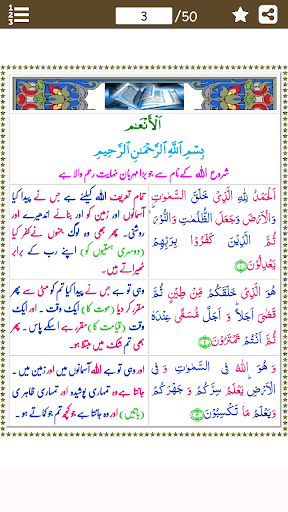 1
2
3
3 /50
اَلْأَنْعَام
بِسْمِ اللّٰهِ الرَّحْمٰنِ الرَّحِيْمِ
شروع اللہ کے نام سے جو بڑا مہربان نہایت رحم والا ہے
اَلْحَمْدُ لِلّٰهِ الَّذِىْ خَلَقَ السَّمٰوٰتِ
وَالْاَرْضَ وَجَعَلَ الظُّلُمٰتِ وَالنُّوْرَ ؕ
ثُمَّ الَّذِيْنَ كَفَرُوْا بِرَبِّهِمْ
يَعْدِلُوْنَ
تمام تعریف اللہ کیلئے ہے جس نے پیدا کیا
آسمانوں اور زمین کو اور بنائے اندھیرے اور
روشنی۔ پھر بھی وہ لوگ جنہوں نے کفر کیا
(دوسری ہستیوں کو) اپنے رب کے برابر
ٹھیراتے ہیں۔
هُوَ الَّذِىْ خَلَقَكُمْ مِّنْ طِيْنٍ ثُمَّ
قَضٰٓى اَجَلًا ؕ وَ اَجَلٌ مُّسَمًّى عِنْدَهٗ
ثُمَّ اَنْتُمْ تَمْتَرُوْنَ
وہی تو ہے جس نے پیدا کیا تم کو مٹی سے پھر
مقرر کر دیا (موت کا) ایک وقت۔ اور ایک
وقت (قیامت کا) مقرر ہے اسکے پاس۔ پھر
بھی تم شک میں مبتلا ہو۔
وَ هُوَ اللّٰهُ فِى السَّمٰوٰتِ وَ فِى
الْاَرْضِ ؕ يَعْلَمُ سِرَّكُمْ وَ جَهْرَكُمْ
وَيَعْلَمُ مَا تَكْسِبُوْنَ
اور وہی تو ہے اللہ آسمانوں میں اور زمین میں۔
جانتا ہے وہ تمہاری پوشیدہ اور تمہاری ظاہری
(باتیں) اور وہ جانتا ہے جو کچھ تم جو کماتے ہو۔